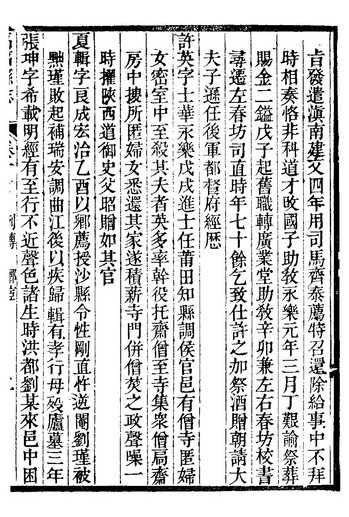 旨發遣滇南建文四年用司馬齊泰薦特召還除給事中不拜
時相奏恪非科道才改國子助教永樂元年三月丁艱諭祭葬
賜金二鎰戊子起舊職轉廣業堂助教辛卯兼左右春坊校書
尋遷左春坊司直時年七十餘乞致仕許之加祭酒贈朝請大
夫子遜任後軍都督府經歷
許英字士華永樂戊戌進士任莆田知縣調侯官邑有僧寺匿婦
女密室中至殺其夫者英多率幹役托齋僧至寺集衆僧局齋
房中搜所匿婦女悉還其家遂積薪寺門併僧焚之政聲噪一
時擢陝西道御史父昭贈如其官
夏輯字艮成宏治乙酉以鄉薦授沙縣令性剛直忤逆閹劉瑾被
黜瑾敗起補瑞安調曲江後以疾歸輯有孝行母殁廬墓三年
張坤字希載明經有至行不近聲色諸生時洪都劉某來邑中困